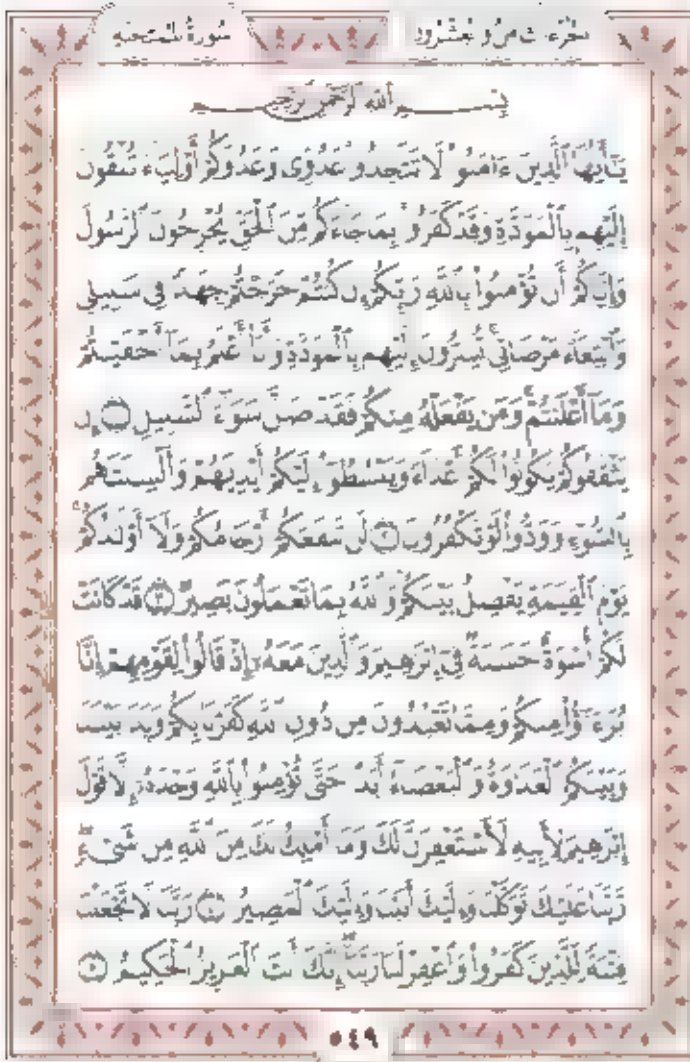 سورة الممتحنة
الجزء الثامن والعشرون
بسم الله الرحمن الرحيم
يَٰٓأَيُّهَا ٱلَّذِينَ ءَامَنُوا۟ لَا تَتَّخِذُوا۟ عَدُوِّى وَعَدُوَّكُمْ أَوْلِيَآءَ تُلْقُونَ
إِلَيْهِم بِٱلْمَوَدَّةِ وَقَدْ كَفَرُوا۟ بِمَا جَآءَكُم مِّنَ ٱلْحَقِّ يُخْرِجُونَ ٱلرَّسُولَ
وَإِيَّاكُمْ أَن تُؤْمِنُوا۟ بِٱللَّهِ رَبِّكُمْ إِن كُنتُمْ خَرَجْتُمْ جِهَٰدًا فِى سَبِيلِى
وَٱبْتِغَآءَ مَرْضَاتِى تُسِرُّونَ إِلَيْهِم بِٱلْمَوَدَّةِ وَأَنَا۠ أَعْلَمُ بِمَآ أَخْفَيْتُمْ
وَمَآ أَعْلَنتُمْ وَمَن يَفْعَلْهُ مِنكُمْ فَقَدْ ضَلَّ سَوَآءَ ٱلسَّبِيلِ ١ إِن
يَثْقَفُوكُمْ يَكُونُوا۟ لَكُمْ أَعْدَآءً وَيَبْسُطُوٓا۟ إِلَيْكُمْ أَيْدِيَهُمْ وَأَلْسِنَتَهُم
بِٱلسُّوٓءِ وَوَدُّوا۟ لَوْ تَكْفُرُونَ ٢ لَن تَنفَعَكُمْ أَرْحَامُكُمْ وَلَآ أَوْلَٰدُكُمْ
يَوْمَ ٱلْقِيَٰمَةِ يَفْصِلُ بَيْنَكُمْ وَٱللَّهُ بِمَا تَعْمَلُونَ بَصِيرٌ ٣ قَدْ كَانَتْ
لَكُمْ أُسْوَةٌ حَسَنَةٌ فِىٓ إِبْرَٰهِيمَ وَٱلَّذِينَ مَعَهُۥٓ إِذْ قَالُوا۟ لِقَوْمِهِمْ إِنَّا
بُرَءَٰٓؤُا۟ مِنكُمْ وَمِمَّا تَعْبُدُونَ مِن دُونِ ٱللَّهِ كَفَرْنَا بِكُمْ وَبَدَا بَيْنَنَا
وَبَيْنَكُمُ ٱلْعَدَٰوَةُ وَٱلْبَغْضَآءُ أَبَدًا حَتَّىٰ تُؤْمِنُوا۟ بِٱللَّهِ وَحْدَهُۥٓ إِلَّا قَوْلَ
إِبْرَٰهِيمَ لِأَبِيهِ لَأَسْتَغْفِرَنَّ لَكَ وَمَآ أَمْلِكُ لَكَ مِنَ ٱللَّهِ مِن شَىْءٍ
رَّبَّنَا عَلَيْكَ تَوَكَّلْنَا وَإِلَيْكَ أَنَبْنَا وَإِلَيْكَ ٱلْمَصِيرُ ٤ رَبَّنَا لَا تَجْعَلْنَا
فِتْنَةً لِّلَّذِينَ كَفَرُوا۟ وَٱغْفِرْ لَنَا رَبَّنَآ إِنَّكَ أَنتَ ٱلْعَزِيزُ ٱلْحَكِيمُ ٥
٥٤٩